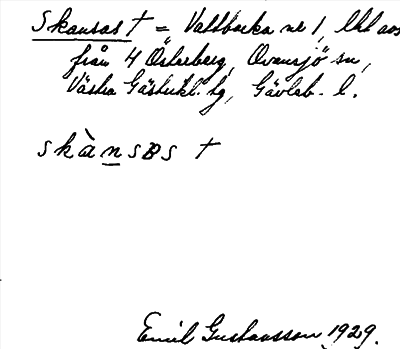 Skansas † = Vallbacka nr 1, lht avs
från 4 Österberg, Ovansjö sn,
Västra Gästrikl. tg, Gävleb. l.
skànsɐs †
Emil Gustavsson 1929.